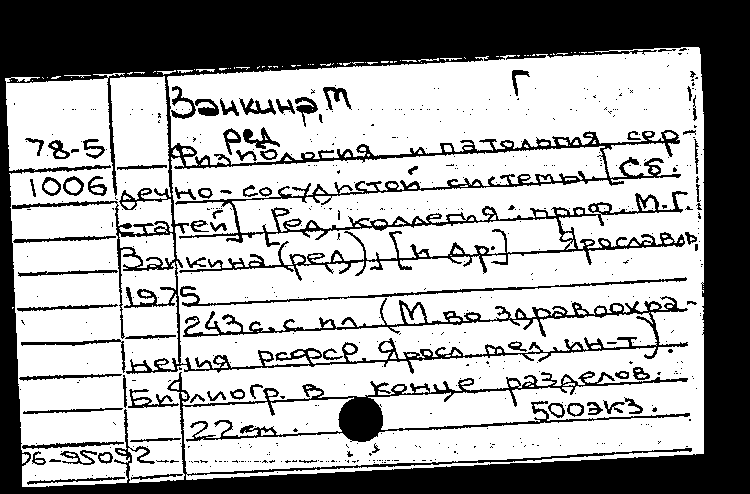 Заикина, М Г
ред
78-5 Физиология и патология сер-
1006 дечно-сосудистой системы. [Сб.
статей]. [Ред. коллегия: проф. М.Г.
Заикина (ред), [и др.] Ярославль
1975
243с. с ил. (М во здравоохра-
нения РСФСР. Яросл. мед. ин-т).
Библиогр. в конце разделов.
22 см. 500экз.
06-95092